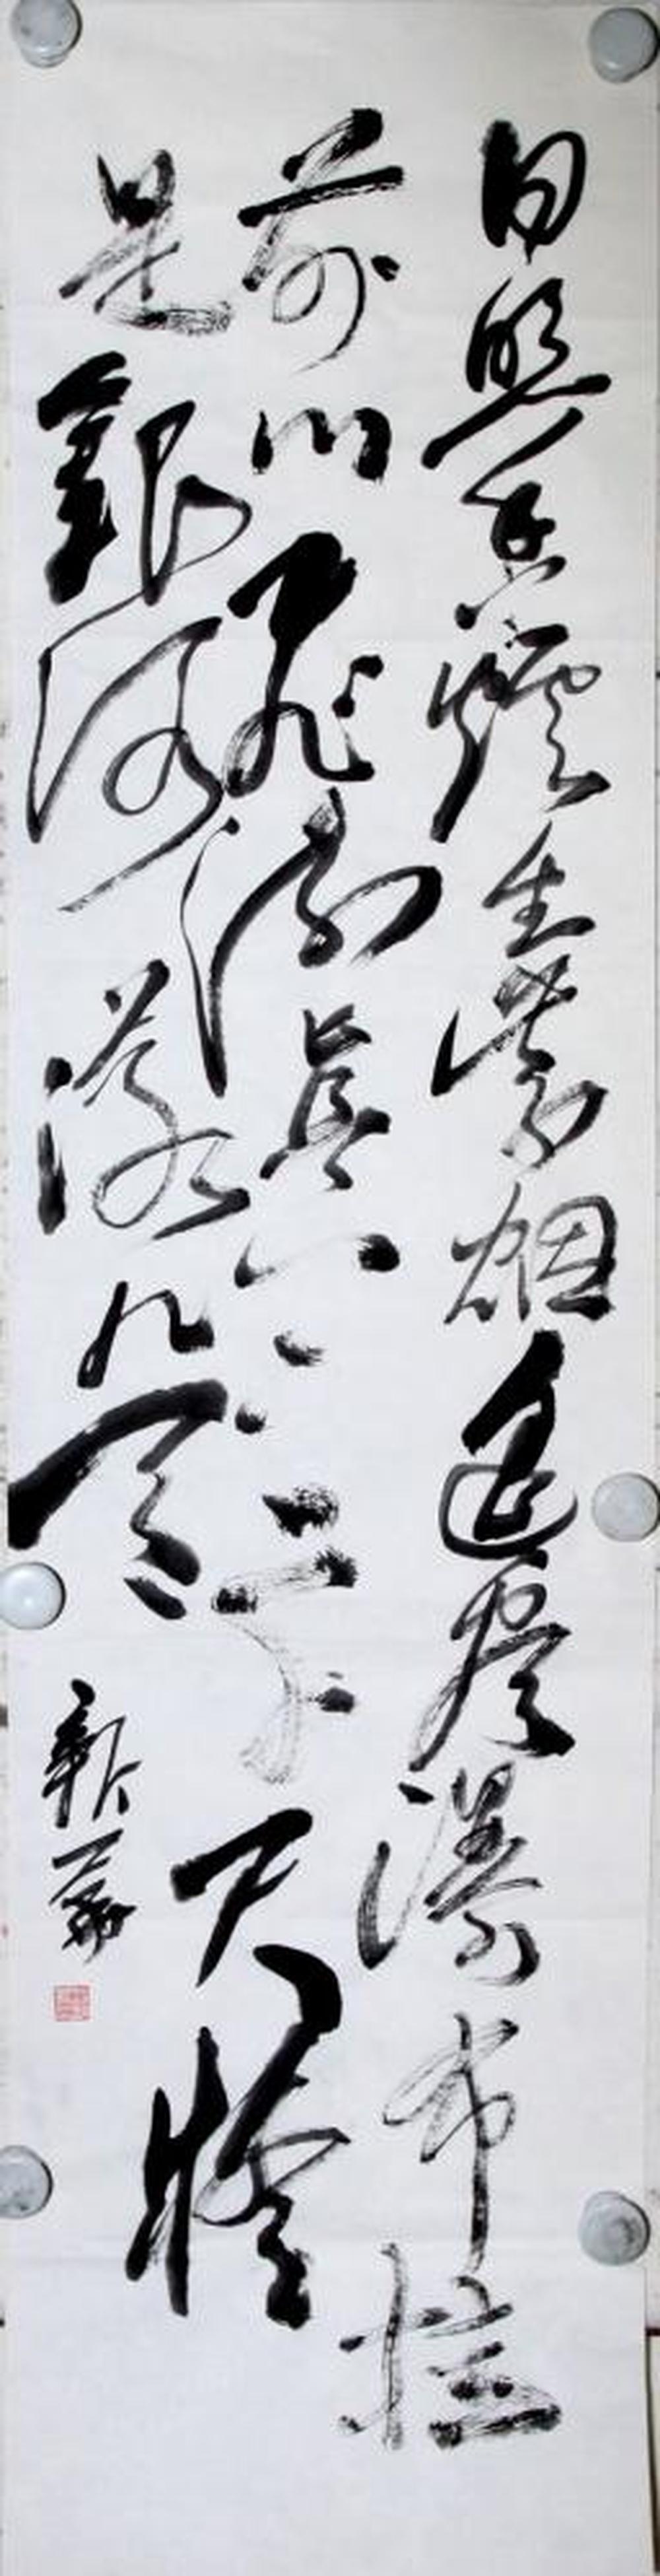 日照香爐生紫烟遥看瀑布挂
前川飛流直下三千尺疑
是銀河落九天
新